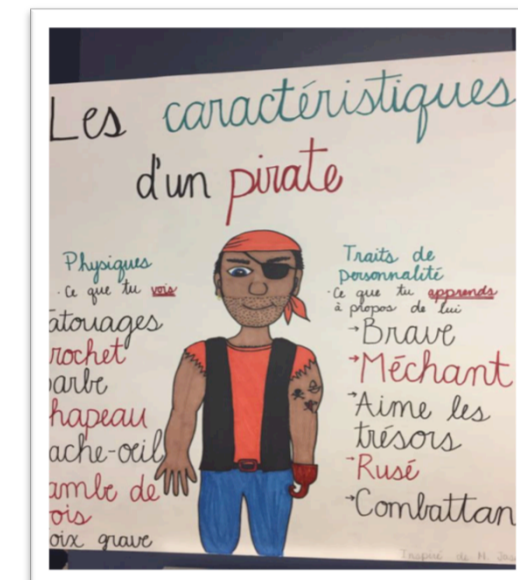 Les caractéristiques
d'un pirate
Physiques
· Ce que tu vois
atouages
rochet
arbe
hapeau
ache-oeil
ambe de
ois
oix grave
Traits de
personnalité
· Ce que tu apprends
à propos de lui
→Brave
→Méchant
→Aime les
trésors
→Rusé
→Combattan
Inspiré de M.